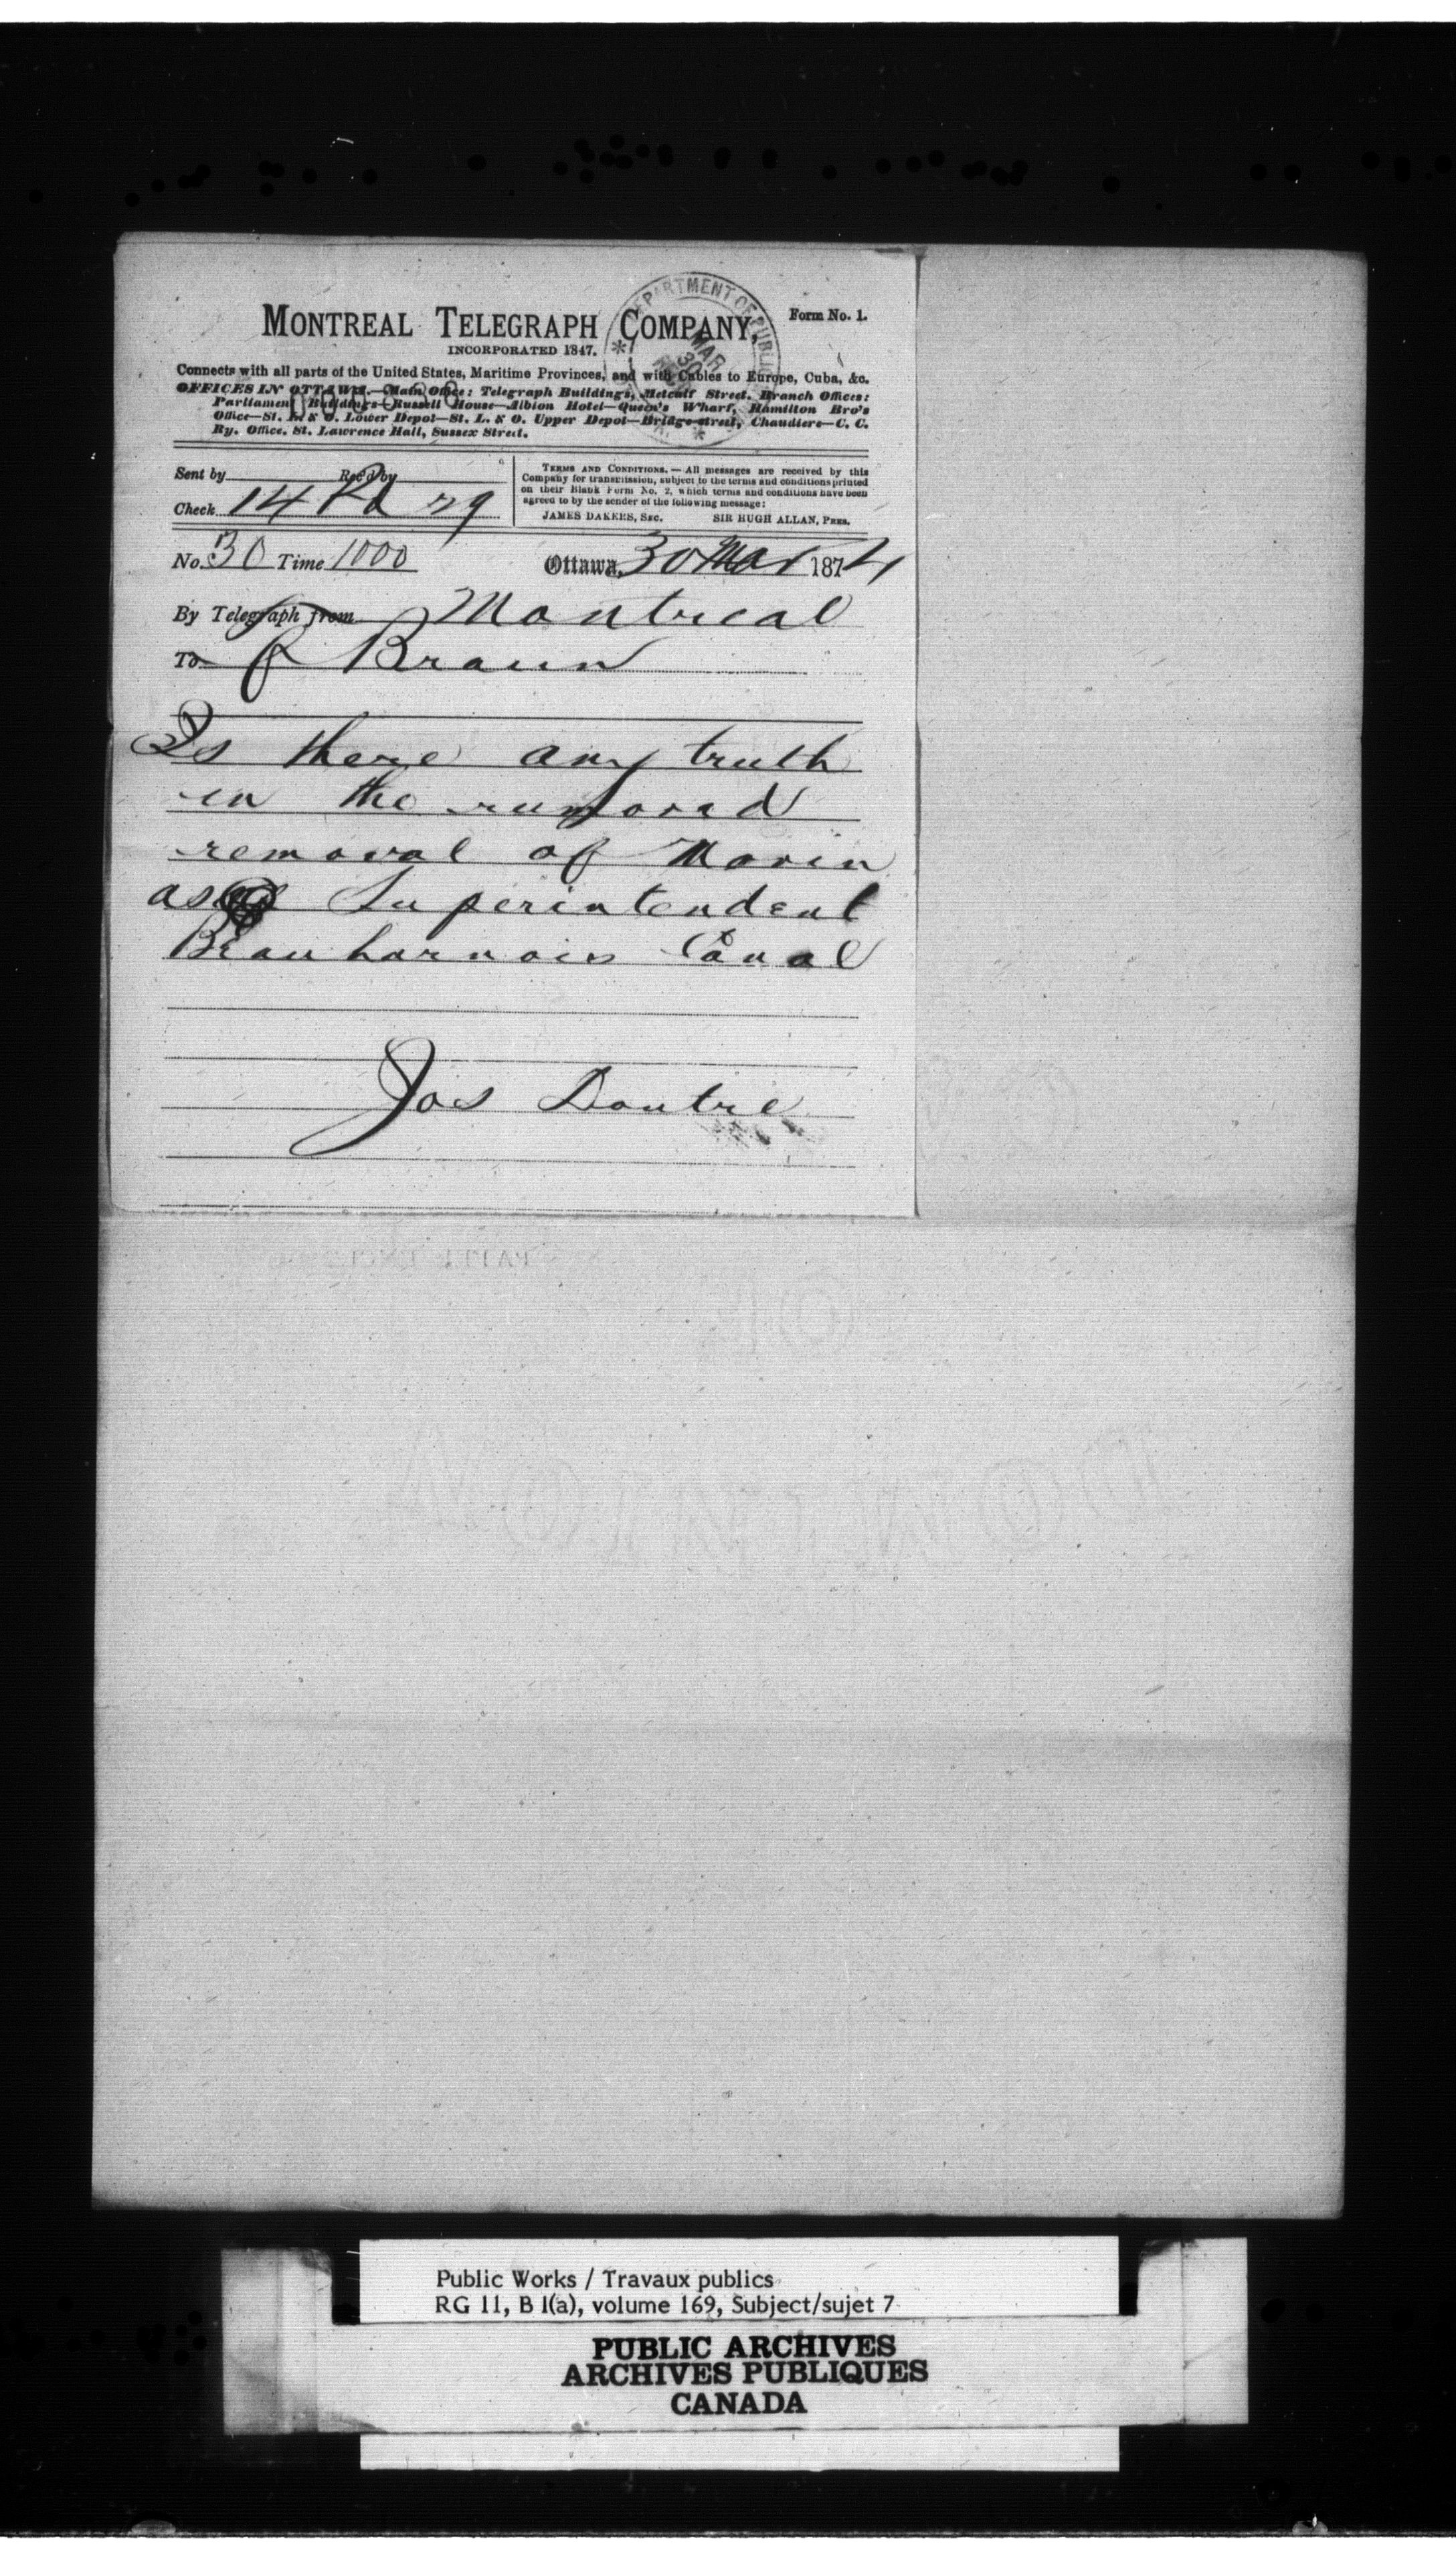 MONTREAL TELEGRAPH COMPANY,
Form No. 1.
INCORPORATED 1847.
DEPARTMENT OF PUBLIC
MAR
30
Connects with all parts of the United States, Maritime Provinces, and with Cables to Europe, Cuba, &c.
OFFICES IN OTTAWA.—Main Office: Telegraph Buildings, Metcalf Street. Branch Offices:
Parliament Buildings—Russell House—Albion Hotel—Queen's Wharf, Hamilton Bro's
Office—St. L. & O. Lower Depot—St. L. & O. Upper Depot—Bridge-street, Chaudiere—C. C.
Ry. Office. St. Lawrence Hall, Sussex Street.
Sent by Rec'd by
Check 14 Pd 29
TERMS AND CONDITIONS.—All messages are received by this
Company for transmission, subject to the terms and conditions printed
on their Blank Form No. 2, which terms and conditions have been
agreed to by the sender of the following message:
JAMES DAKERS, SEC. SIR HUGH ALLAN, PRES.
No. 30 Time 1000 Ottawa, 30 Mar 1874
By Telegraph from Montreal
To F Braun
Is there any truth
in the rumored
removal of Morin
as Superintendent
Beauharnois Canal
Jos Doutre
Public Works / Travaux publics
RG 11, B 1(a), volume 169, Subject/sujet 7
PUBLIC ARCHIVES
ARCHIVES PUBLIQUES
CANADA